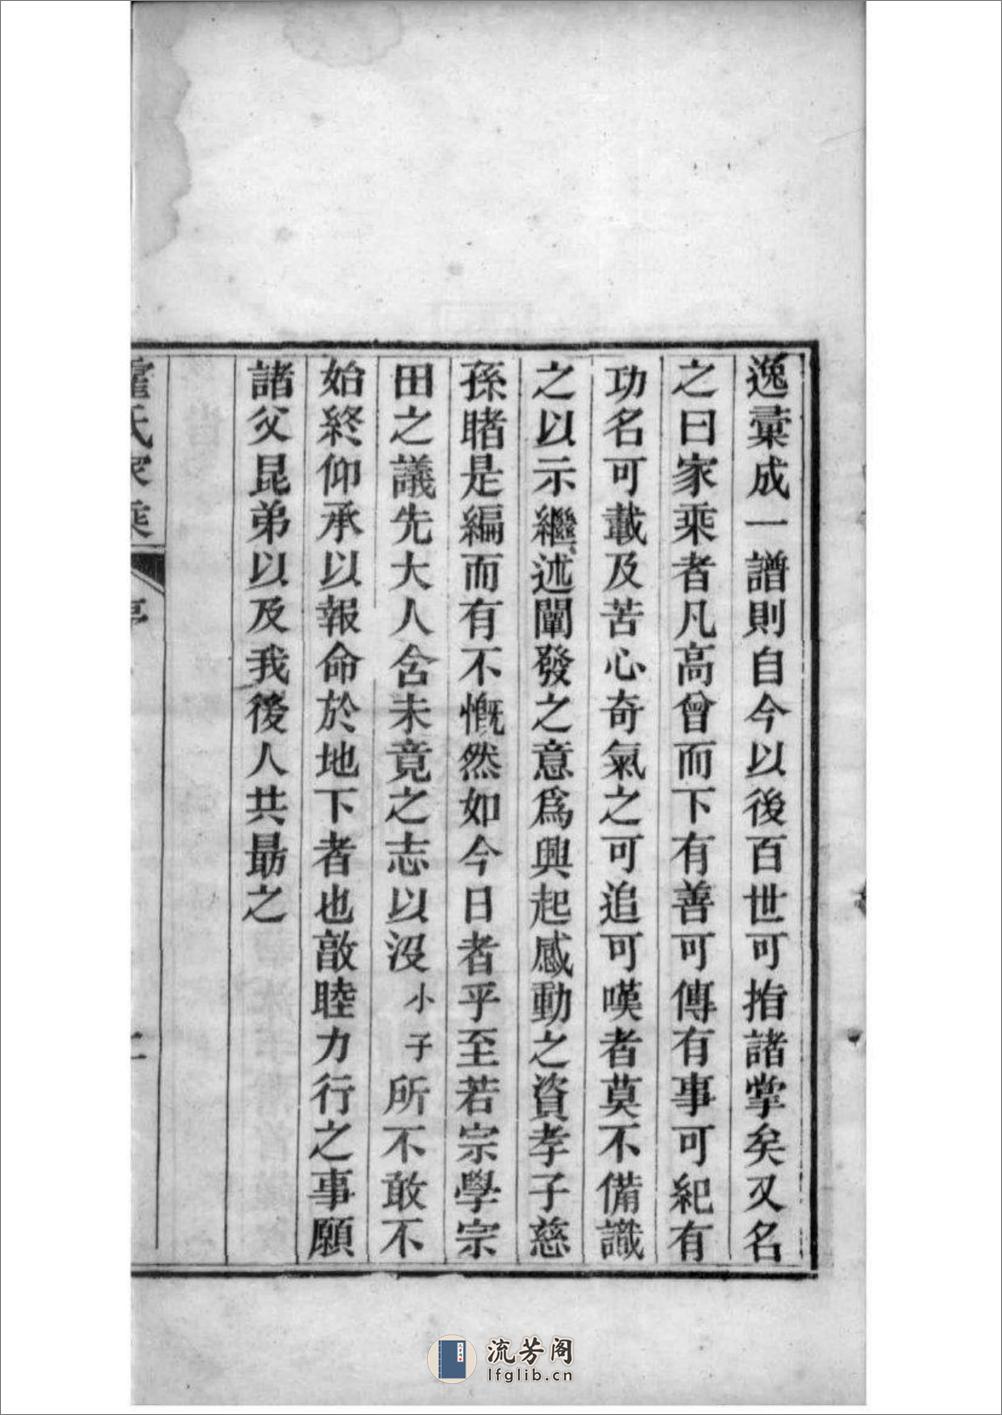 逸彚成一譜則自今以後百世可指諸掌矣又名
之曰家乘者凡高曾而下有善可傳有事可紀有
功名可載及苦心奇氣之可追可嘆者莫不備識
之以示繼述闡發之意爲興起感動之資孝子慈
孫睹是編而有不慨然如今日者乎至若宗學宗
田之議先大人含未竟之志以沒小子所不敢不
始終仰承以報命於地下者也敦睦力行之事願
諸父昆弟以及我後人共勗之
氏家乘
序
流芳阁
lfglib.cn